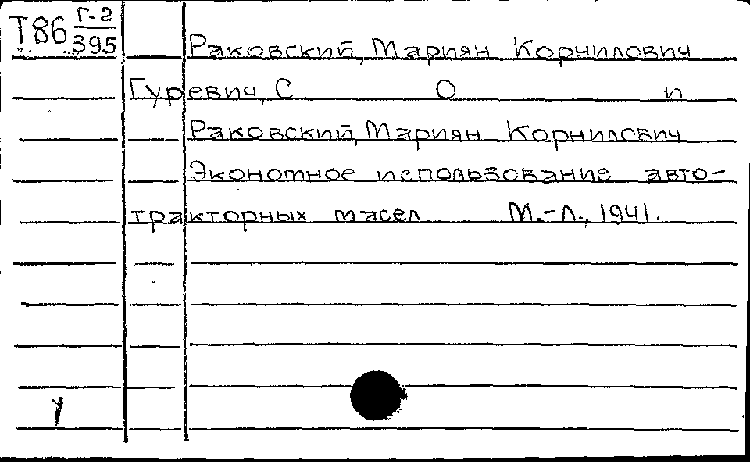 Т86 Г-2
395
Раковский, Мариян Корнилович
Гуревич, С О и
Раковский, Мариян Корнилович
Экономное использование авто-
тракторных масел М.-Л., 1941.